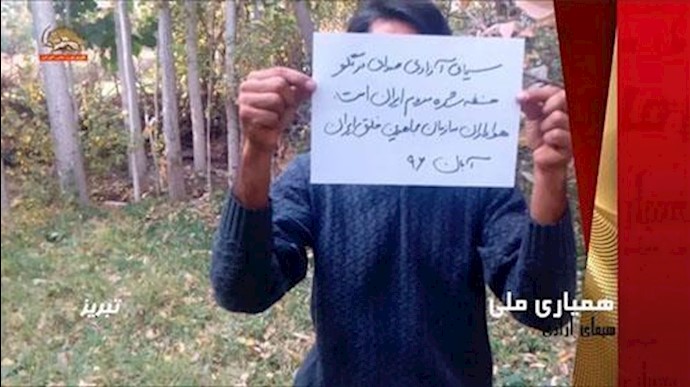 سیمای آزادی صدای در گلو
خفه شده مردم ایران است.
هواداران سازمان مجاهدین خلق ایران
آبان ۹۶
تبریز
همیاری ملی
سیمای آزادی